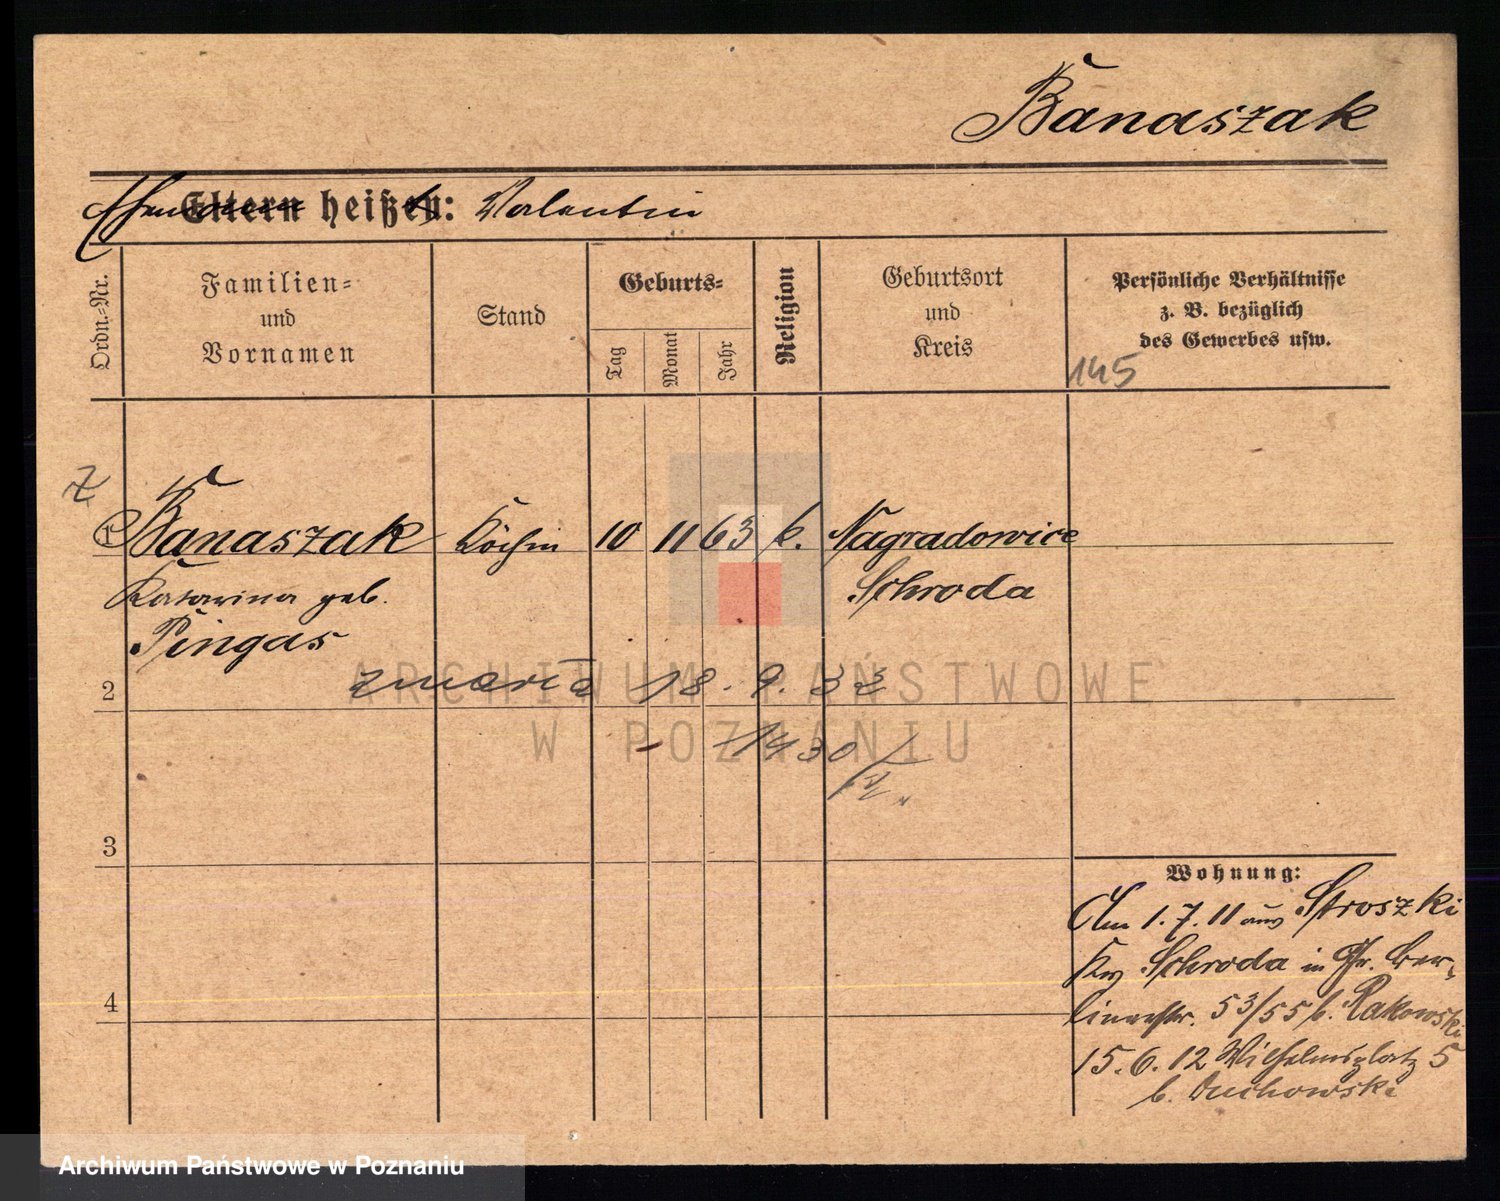 Banaszak
Ehemann Eltern heißen: Valentin
Ordn.-Nr.
Familien-
und
Vornamen
Stand
Geburts-
Tag
Monat
Jahr
Religion
Geburtsort
und
Kreis
Persönliche Verhältnisse
z. B. bezüglich
des Gewerbes usw.
145
Z
1 Banaszak Köchin 10 11 63 k. Nagradowice
Katarina geb. Schroda
Pingas
2 zmarła 18. 9. 33
1430/
IV
3
Wohnung:
Am 1. 7. 11 aus Stroszki
Krs Schroda in Gr. Ber-
4 linerstr. 53/55 b. Rakowski
15. 6. 12 Wilhelmsplatz 5
b. Duchowski
ARCHIWUM PAŃSTWOWE
W POZNANIU
Archiwum Państwowe w Poznaniu